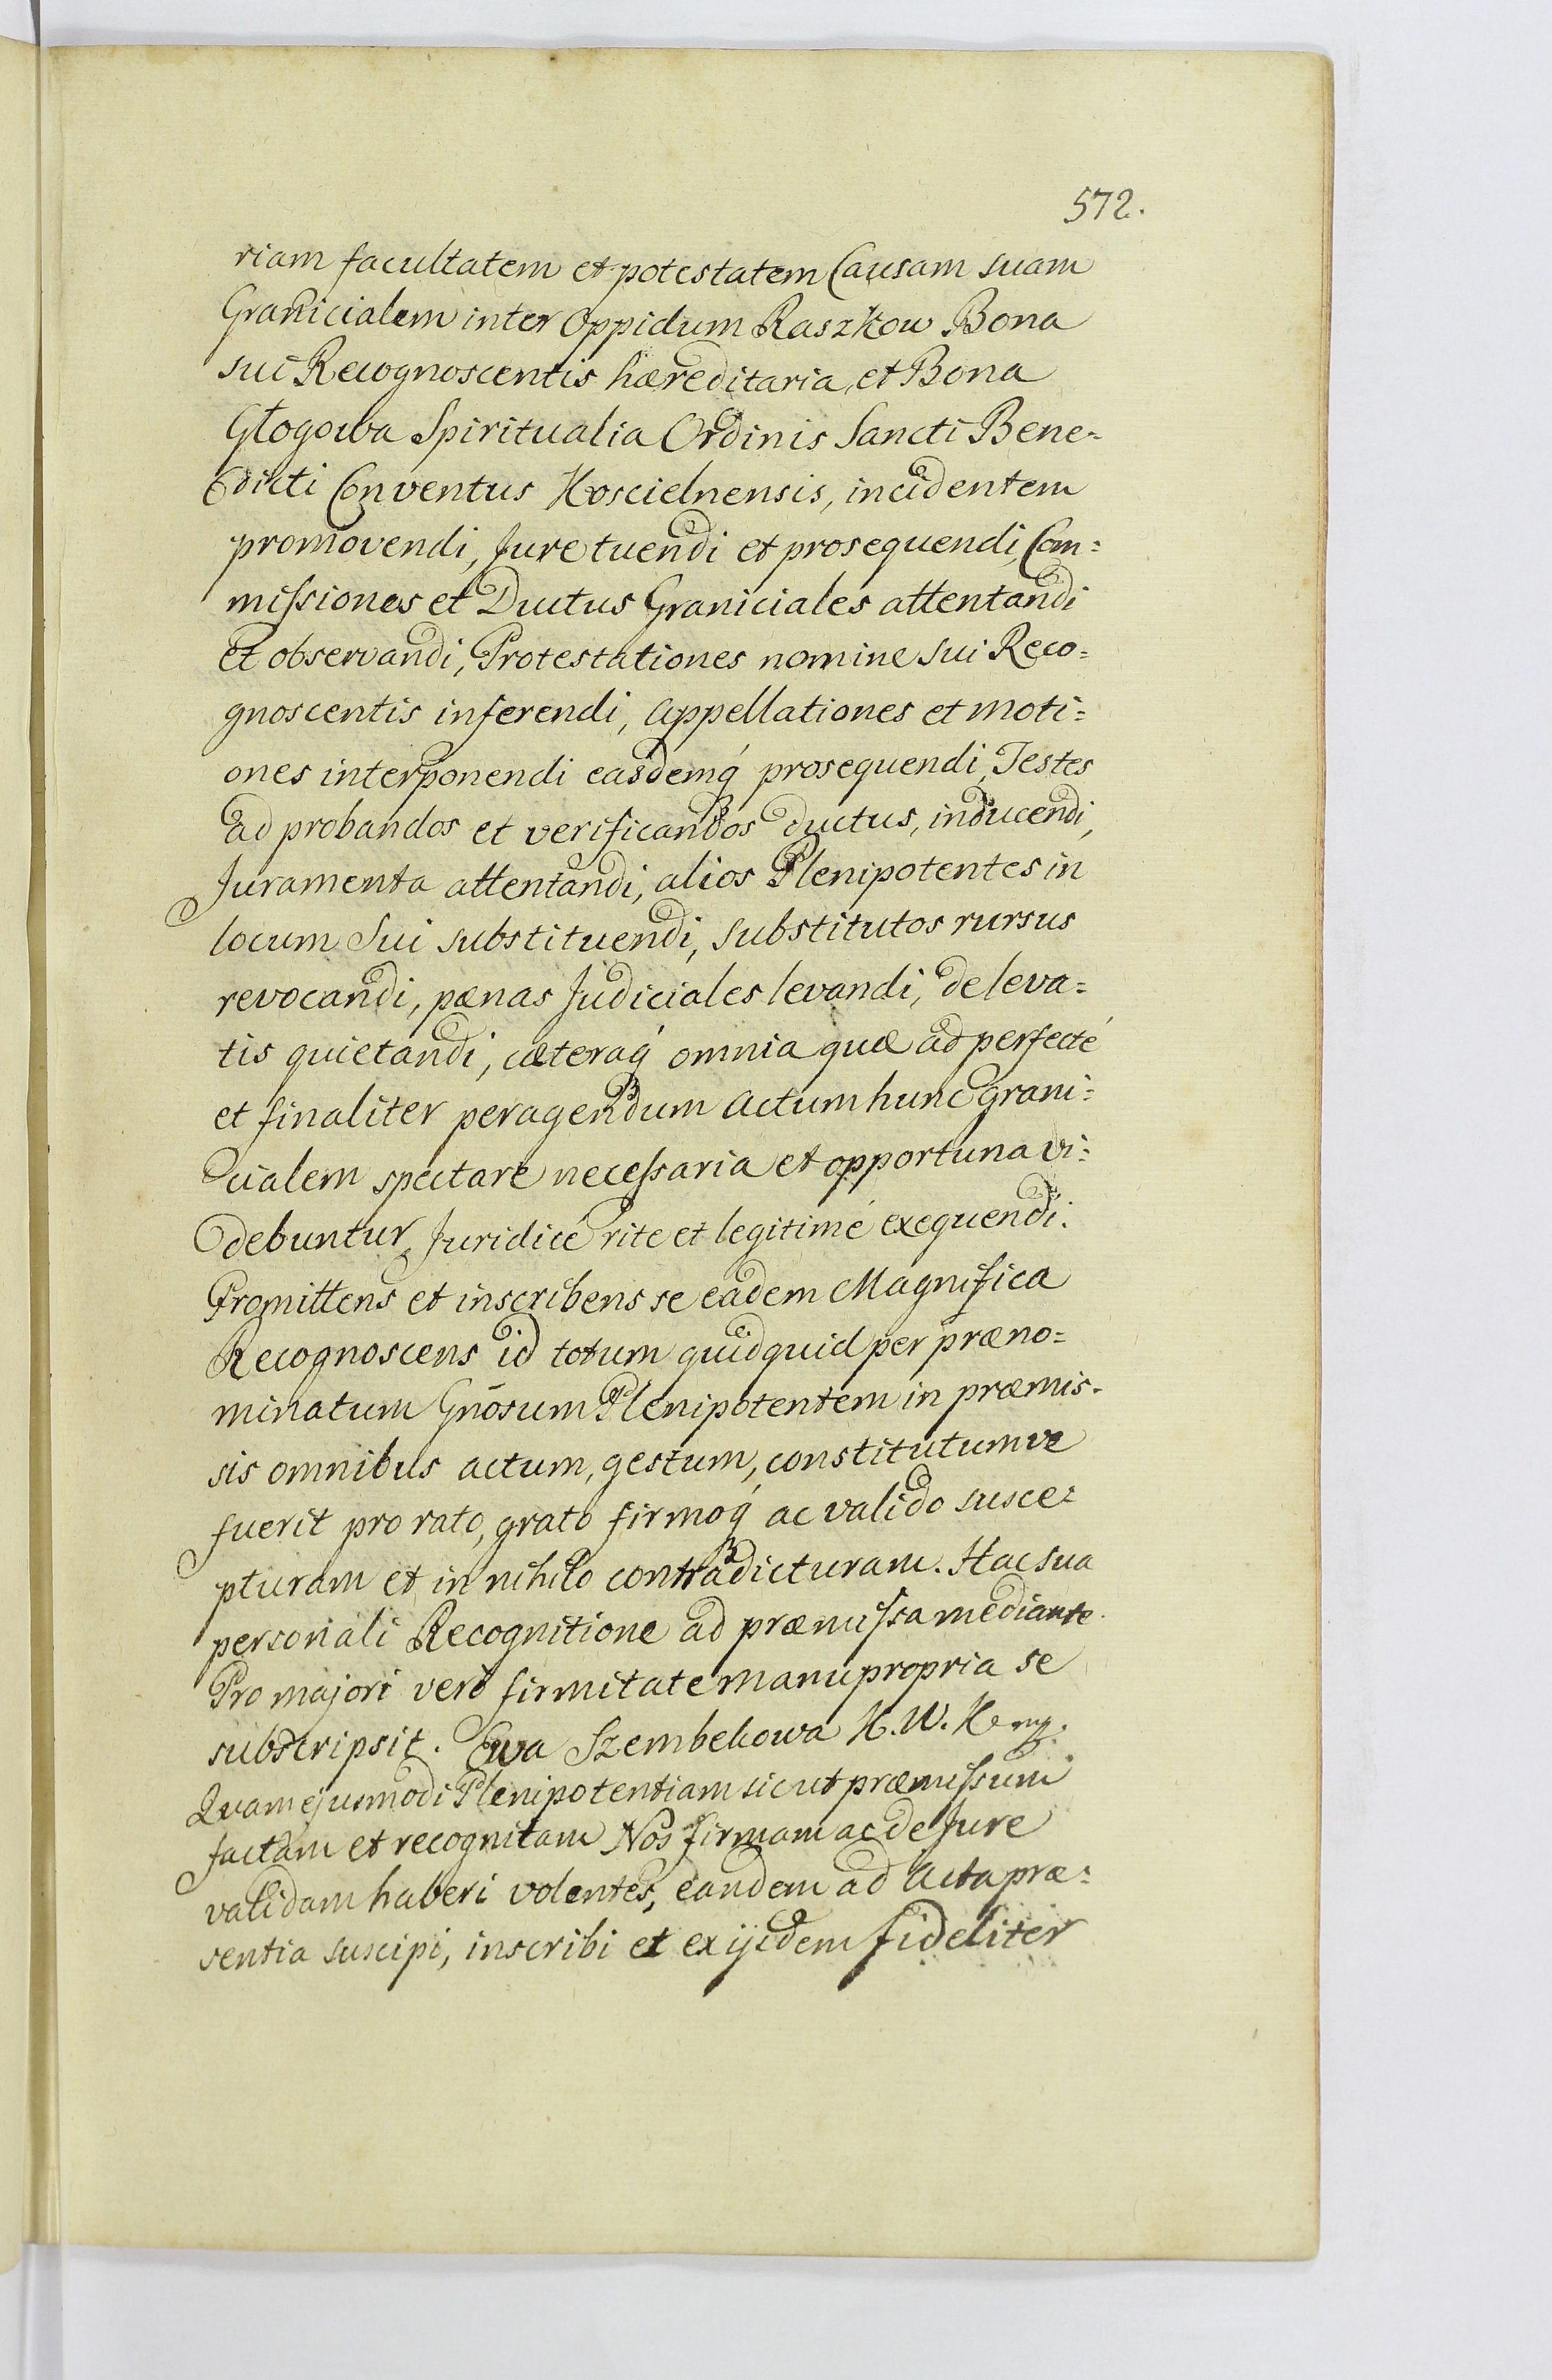 572.
riam facultatem et potestatem Causam suam
Granicialem inter Oppidum Raszkow Bona
sui Recognoscentis hæreditaria, et Bona
Głogowa Spiritualia Ordinis Sancti Bene=
dicti Conventus Koscielnensis, incidentem
promovendi, Jure tuendi et prosequendi, Com=
missiones et Ductus Graniciales attentandi
et observandi, Protestationes nomine sui Reco=
gnoscentis inferendi, Appellationes et moti=
ones interponendi easdemq́ prosequendi, Testes
ad probandos et verificandos ductus, inducendi,
Juramenta attentandi, alios Plenipotentes in
locum Sui substituendi, substitutos rursus
revocandi, pænas Judiciales levandi, de leva=
tis quietandi, cæteraq́ omnia quæ ad perfecté
et finaliter peragendum Actum hunc Grani=
cialem spectare necessaria et opportuna vi=
debuntur, Juridicé rite et legitimé exequendi.
Promittens et inscribens se eadem Magnifica
Recognoscens id totum quidquid per præno=
minatum Gnōsum Plenipotentem in præmis=
sis omnibus actum, gestum, constitutumve
fuerit pro rato, grato firmoq́ ac valido susce=
pturam et in nihilo contradicturam. Hac sua
personali Recognitione ad præmissa mediante.
Pro majori veró firmitate manu propria se
subscripsit. Ewa Szembekowa K. W. K. mp.
Quam ejusmodi Plenipotentiam sicut præmissum
factam et recognitam Nos firmam ac de Jure
validam haberi volentes, eandem ad Acta præ=
sentia suscipi, inscribi et ex ijsdem fideliter